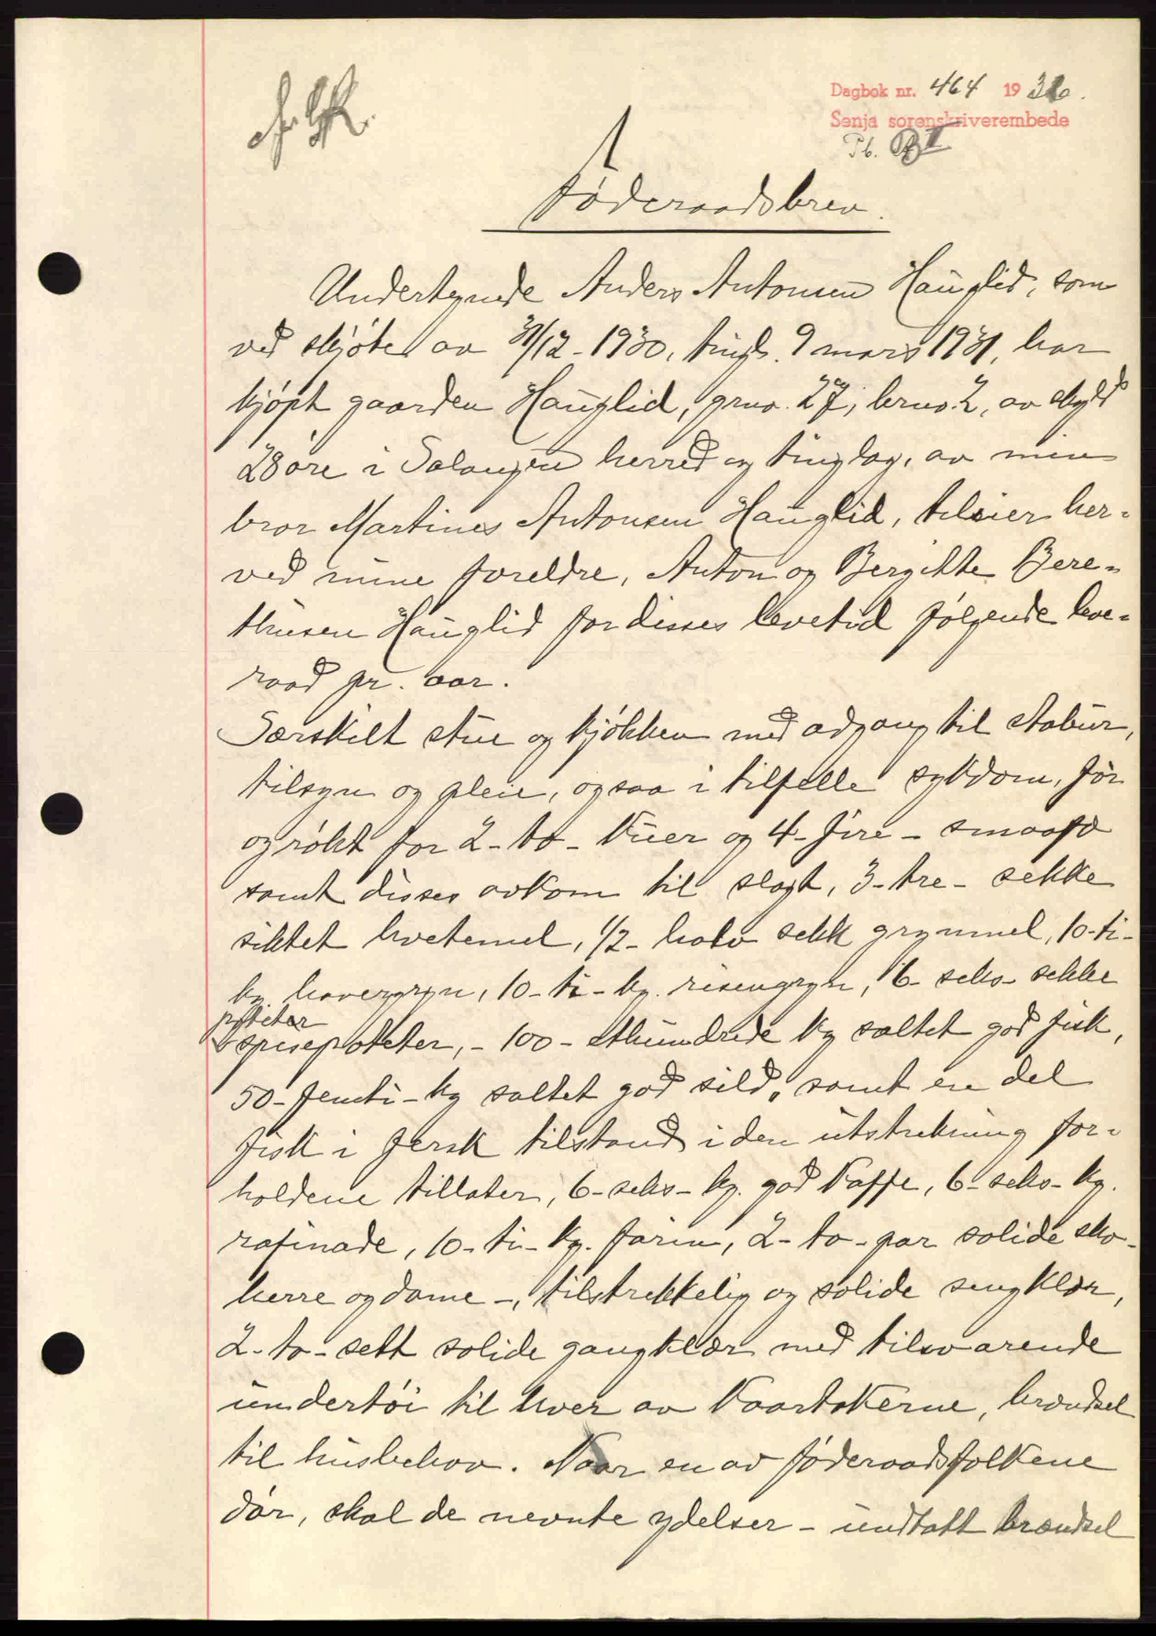 Dagbok nr. 464 1936.
Senja sorenskriverembede
Pb. B II
Føderaadsbrev.
Undertegnede Anders Antonsen Hauglid, som
ved skjøte av 31/12-1930, tingl. 9 mars 1931, har
kjøpt gaarden Hauglid, grno. 27, brno. 2, av skyld
28 øre i Salangen herred og tinglag, av min
bror Martines Antonsen Hauglid, tilsier her-
ved mine foreldre, Anton og Bergitte Bere-
thusen Hauglid for disses levetid følgende leve-
raad pr. aar.
Særskilt stue og kjøkken med adgang til stabur,
tilsyn og pleie, ogsaa i tilfelle sykdom, før
og røkt for 2-to- kuer og 4-fire- smaafæ
samt disses avkom til slagt, 3-tre- sekke
siktet hvetemel, 1/2-halv sekk grynmel, 10-ti-
kg. havregryn, 10-ti-kg. risengryn, 6-seks-sekke
poteter
spisepoteter, -100-etthundrede kg saltet god fisk,
50-femti-kg saltet god sild, samt en del
fisk i fersk tilstand i den utstrekning for-
holdene tillater, 6-seks-kg. god kaffe, 6-seks-kg.
rafinade, 10-ti-kg. farin, 2-to-par solide sko-
herre og dame-, tilstrekkelig og solide sengklær,
2-to-sett solide gangklær med tilsvarende
undertøi til hver av kaartakerne, brændsel
til husbehov. Naar en av føderaadsfolkene
dør, skal de nevnte ydelser - undtatt brændsel